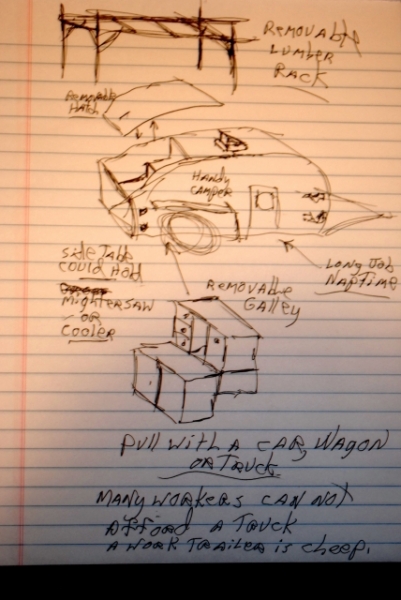 REMOVABLE
LUMBER
RACK
REMOVABLE
HATCH
HANDY
CAMPER
Side Table
COULD HOLD
MIGHTERSAW
OR
COOLER
LONG JOB
NAPTIME
REMOVABLE
GALLEY
PULL WITH A CAR, WAGON
OR TRUCK
MANY WORKERS CAN NOT
AFFORD A TRUCK
A WORK TRAILER is cheep.